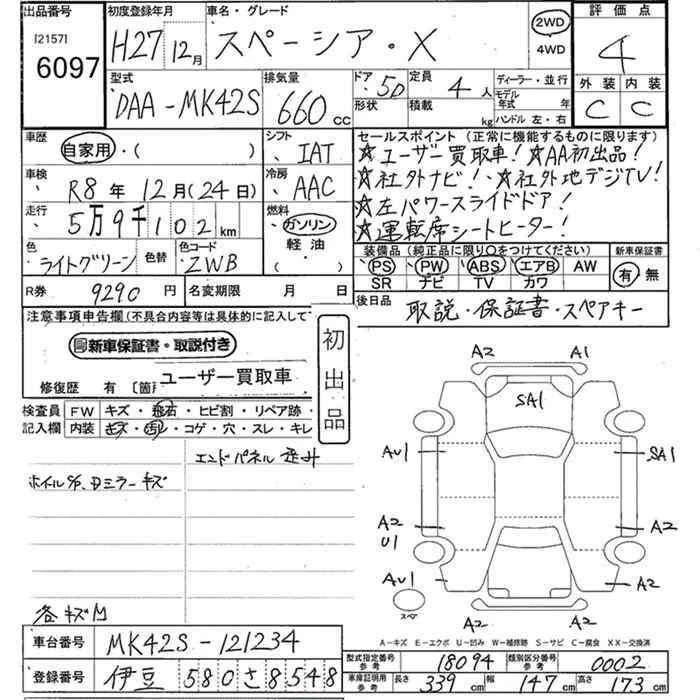 出品番号
[2157]
6097
初度登録年月
H27 12月
車名・グレード
スペーシア・X
2WD
4WD
評価点
4
外装 内装
C C
型式
DAA-MK42S
排気量
660 cc
ドア 5D
形状
定員 4 人
積載 kg
ディーラー・並行
モデル年式 年
ハンドル 左・右
車歴
自家用・( )
シフト
IAT
車検
R8年 12月(24日)
冷房
AAC
走行
5万9千102km
燃料
ガソリン
軽油
( )
色
ライトグリーン
色替
色コード
ZWB
R券 9290円
名変期限 月 日
セールスポイント(正常に機能するものに限ります)
☆ユーザー買取車!☆AA初出品!
☆社外ナビ!・☆社外地デジTV!
☆左パワースライドドア!
☆運転席シートヒーター!
装備品(純正品に限り○をつけてください)
PS PW ABS エアB AW
SR ナビ TV カワ
新車保証書
有 無
後日品
取説・保証書・スペアキー
注意事項申告欄(不具合内容等は具体的に記入して
新車保証書・取説付き
修復歴 有 〔箇
ユーザー買取車
初出品
検査員
記入欄
FW キズ・飛石・ヒビ割・リペア跡・
内装 キズ・汚レ・コゲ・穴・スレ・キレ
エンドパネル歪み
ミラーキズ
A2 A1
SA1
AU1 SA1
A2 A2
U1
AU1 A2
A2 A2
スペア
A-キズ E-エクボ U-凹み W-補修跡 S-サビ C-腐食 XX-交換済
車台番号 MK42S-121234
登録番号 伊豆 580 さ 8548
型式指定番号 参考 18094
類別区分番号 参考 0002
車庫証明用 参考 長さ 339cm 幅 147cm 高さ 173cm